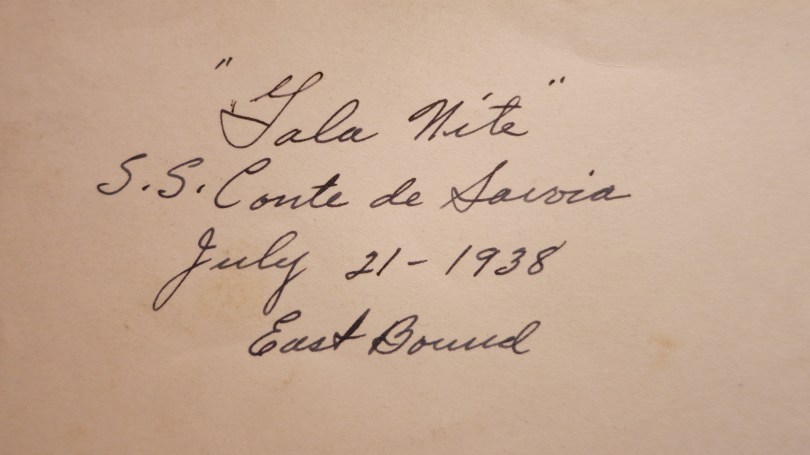 "Gala Nite"
S.S. Conte de Savoia
July 21-1938
East Bound